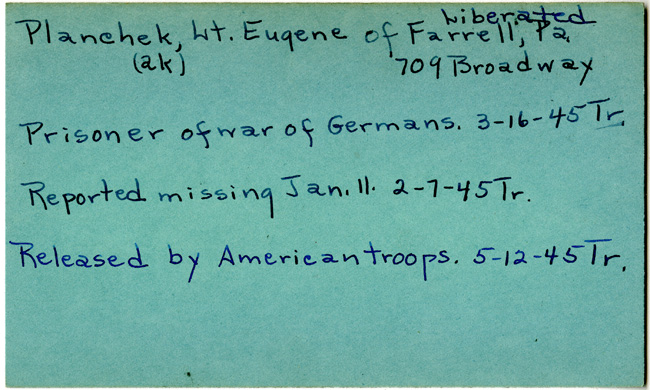 Liberated
Planchek, Lt. Eugene of Farrell, Pa.
(ak) 709 Broadway
Prisoner of war of Germans. 3-16-45 Tr.
Reported missing Jan. 11. 2-7-45 Tr.
Released by American troops. 5-12-45 Tr.